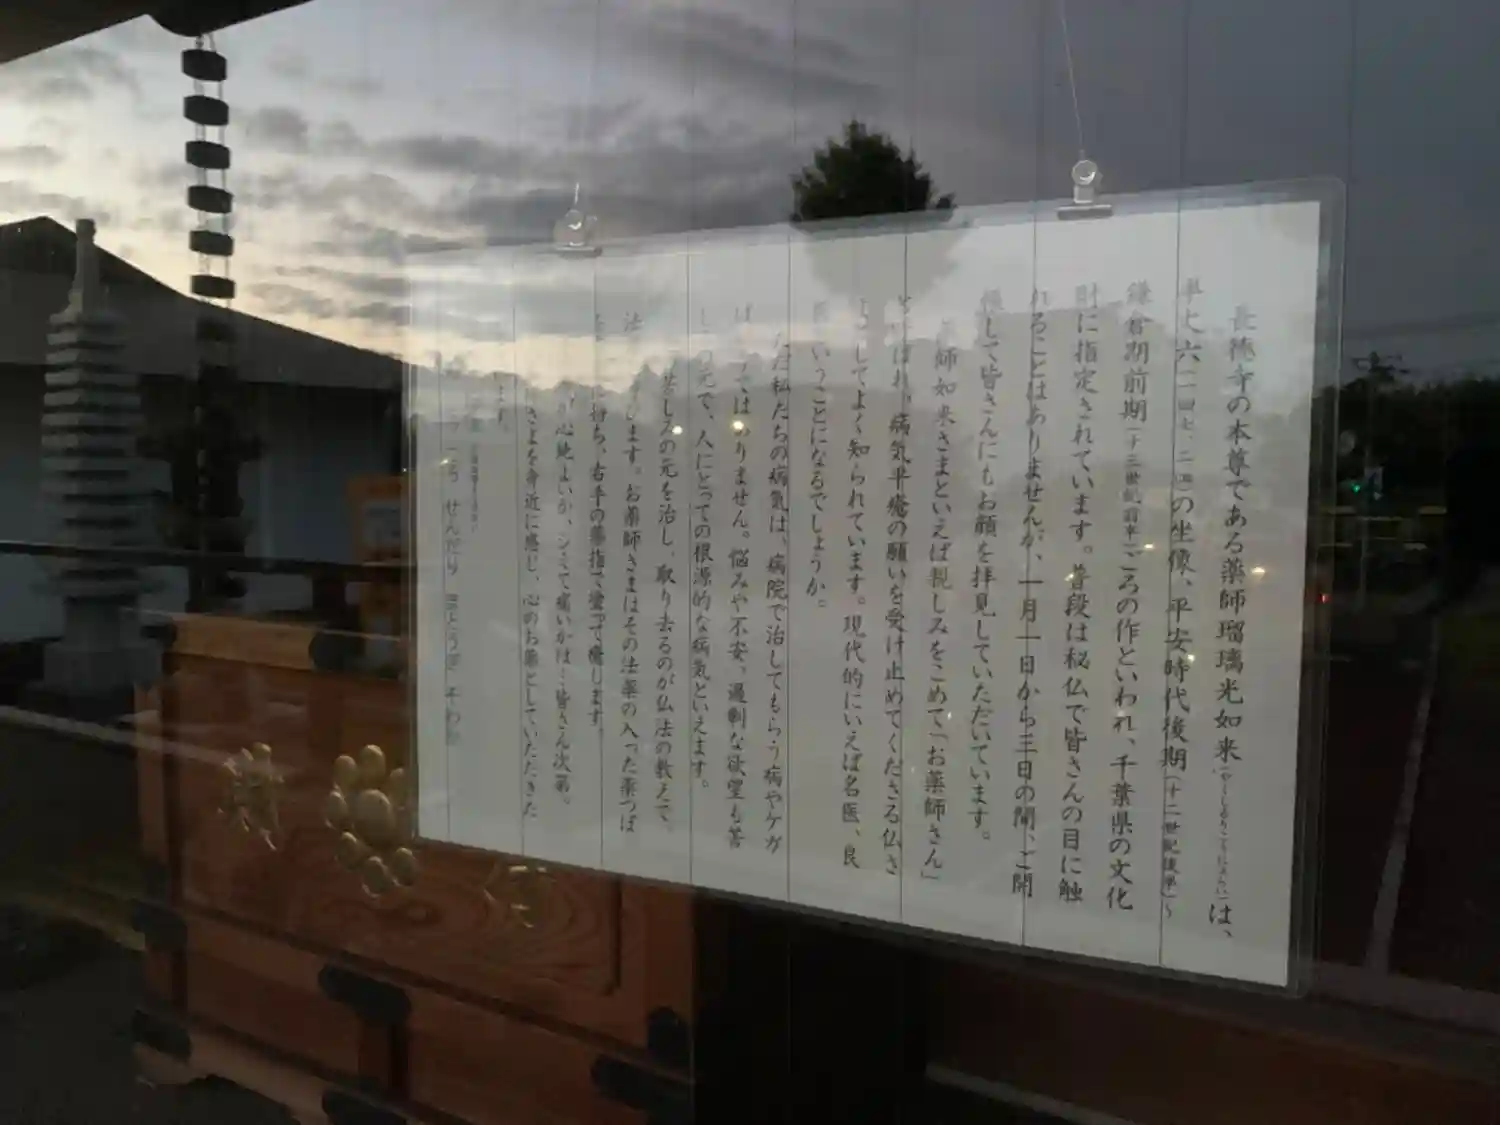 長徳寺の本尊である薬師瑠璃光如来(やくしるりこうにょらい)は、
の坐像、平安時代後期(十二世紀後半)~
鎌倉期前期(十三世紀前半)ごろの作といわれ、千葉県の文化
財に指定されています。普段は秘仏で皆さんの目に触
れることはありませんが、一月一日から三日の間、ご開
帳して皆さんにもお顔を拝見していただいています。
薬師如来さまといえば親しみをこめて「お薬師さん」
とよばれ、病気平癒の願いを受け止めてくださる仏さ
としてよく知られています。現代的にいえば名医、良
医ということになるでしょうか。
ただ私たちの病気は、病院で治してもらう病やケガ
ばかりではありません。悩みや不安、過剰な欲望も苦
しみの元で、人にとっての根源的な病気といえます。
苦しみの元を治し、取り去るのが仏法の教えで、
法 ます。お薬師さまはその法薬の入った薬つぼ
を持ち、右手の薬指で塗って癒します。
心地よいか、シミて痛いかは…皆さん次第。
さまを身近に感じ、心のお薬としていただきた
ます。
せんだり まとうぎ そわか